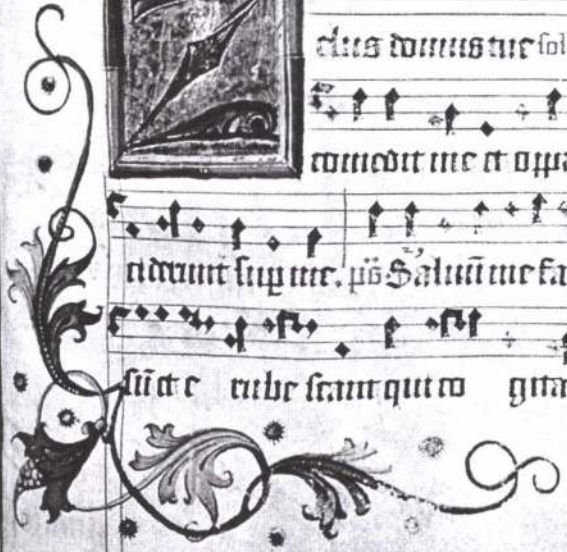 Zelus domus tue sol
comedit me et opp
ciderunt sup me. ps̄ Saluū me fa
sū et e rube scant qui co gita